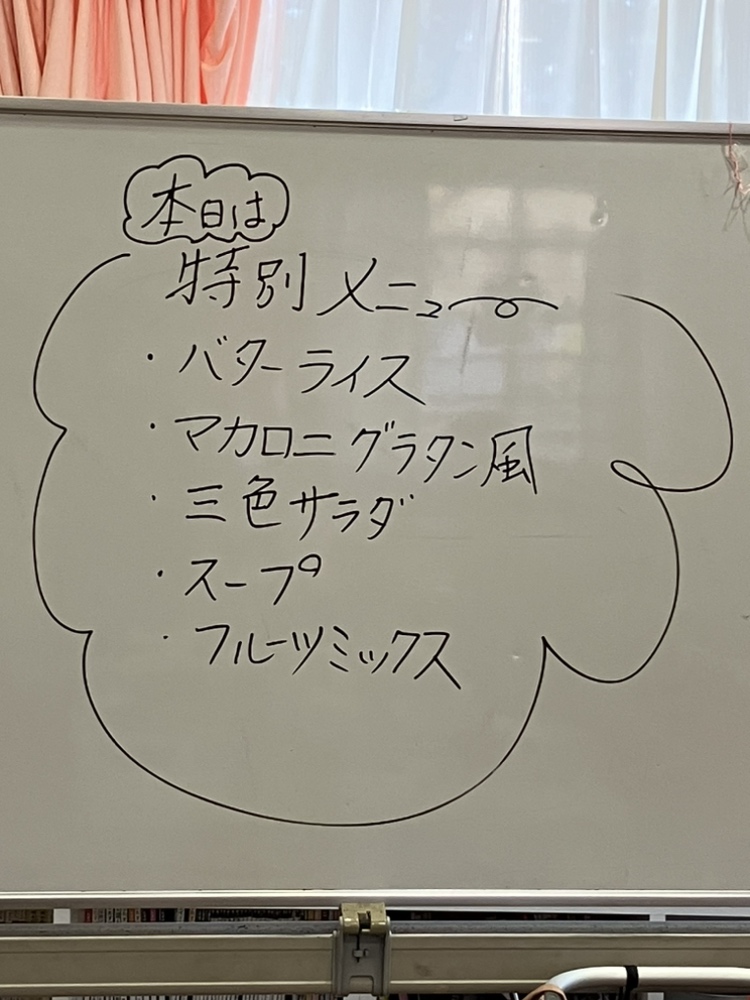 本日は
特別メニュー
・バターライス
・マカロニグラタン風
・三色サラダ
・スープ
・フルーツミックス